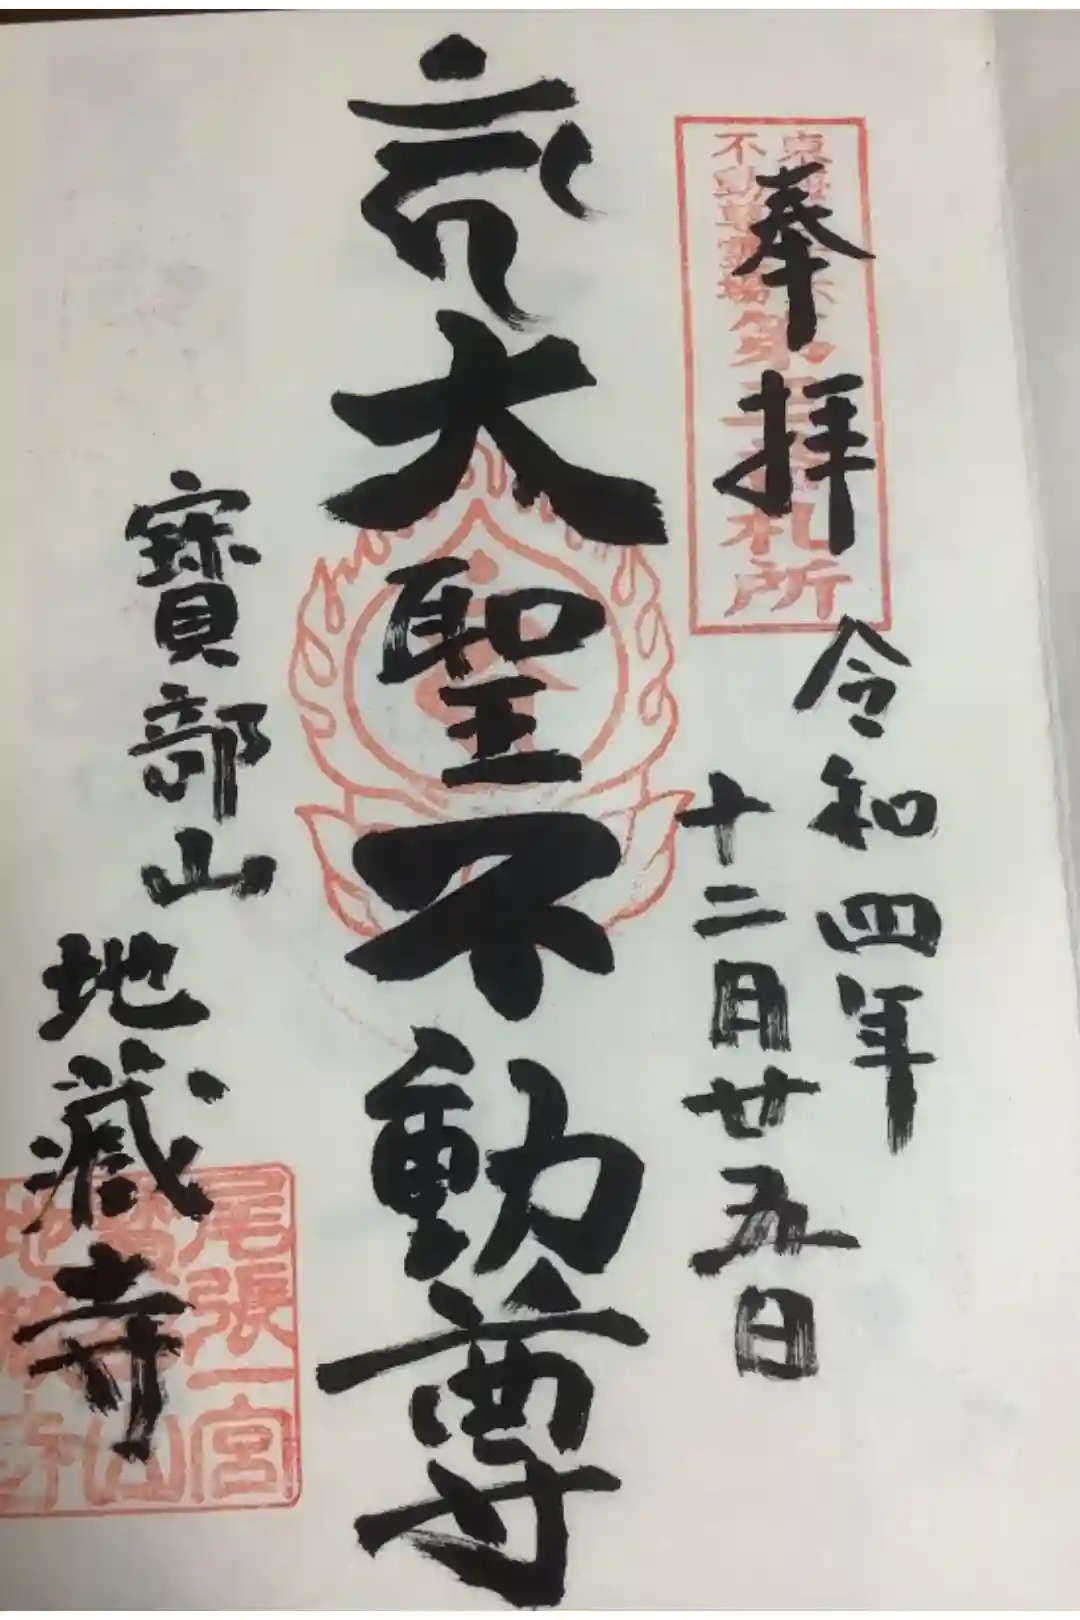 奉拝
令和四年
十二月廿五日
大聖不動尊
寳部山
地蔵寺
東海
不動尊霊場
札所
尾張一宮
山
地蔵寺